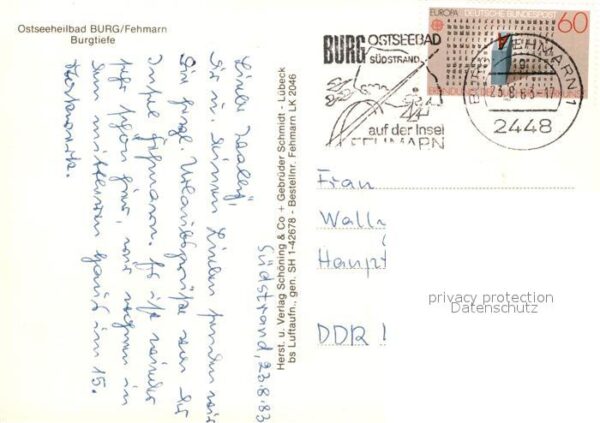 Ostseeheilbad BURG/Fehmarn
Burgtiefe
Südstrand, 23.8.83
Liebe Wally,
Dir u. Deinen Lieben senden wir
die Urlaubsgrüße von der
Insel Fehmarn. Es ist wieder
sehr schön hier, wir wohnen in
dem mittleren Haus im 15.
Stockwerk.
Herst. u. Verlag Schöning & Co + Gebrüder Schmidt - Lübeck
bs Luftaufn., gen. SH 1-42678 - Bestellnr. Fehmarn LK 2046
BURG OSTSEEBAD
SÜDSTRAND
auf der Insel
FEHMARN
EUROPA DEUTSCHE BUNDESPOST 60
BURG, FEHMARN 1
23.8.83-17
2448
Frau
Wall
Haupt
DDR !
privacy protection
Datenschutz